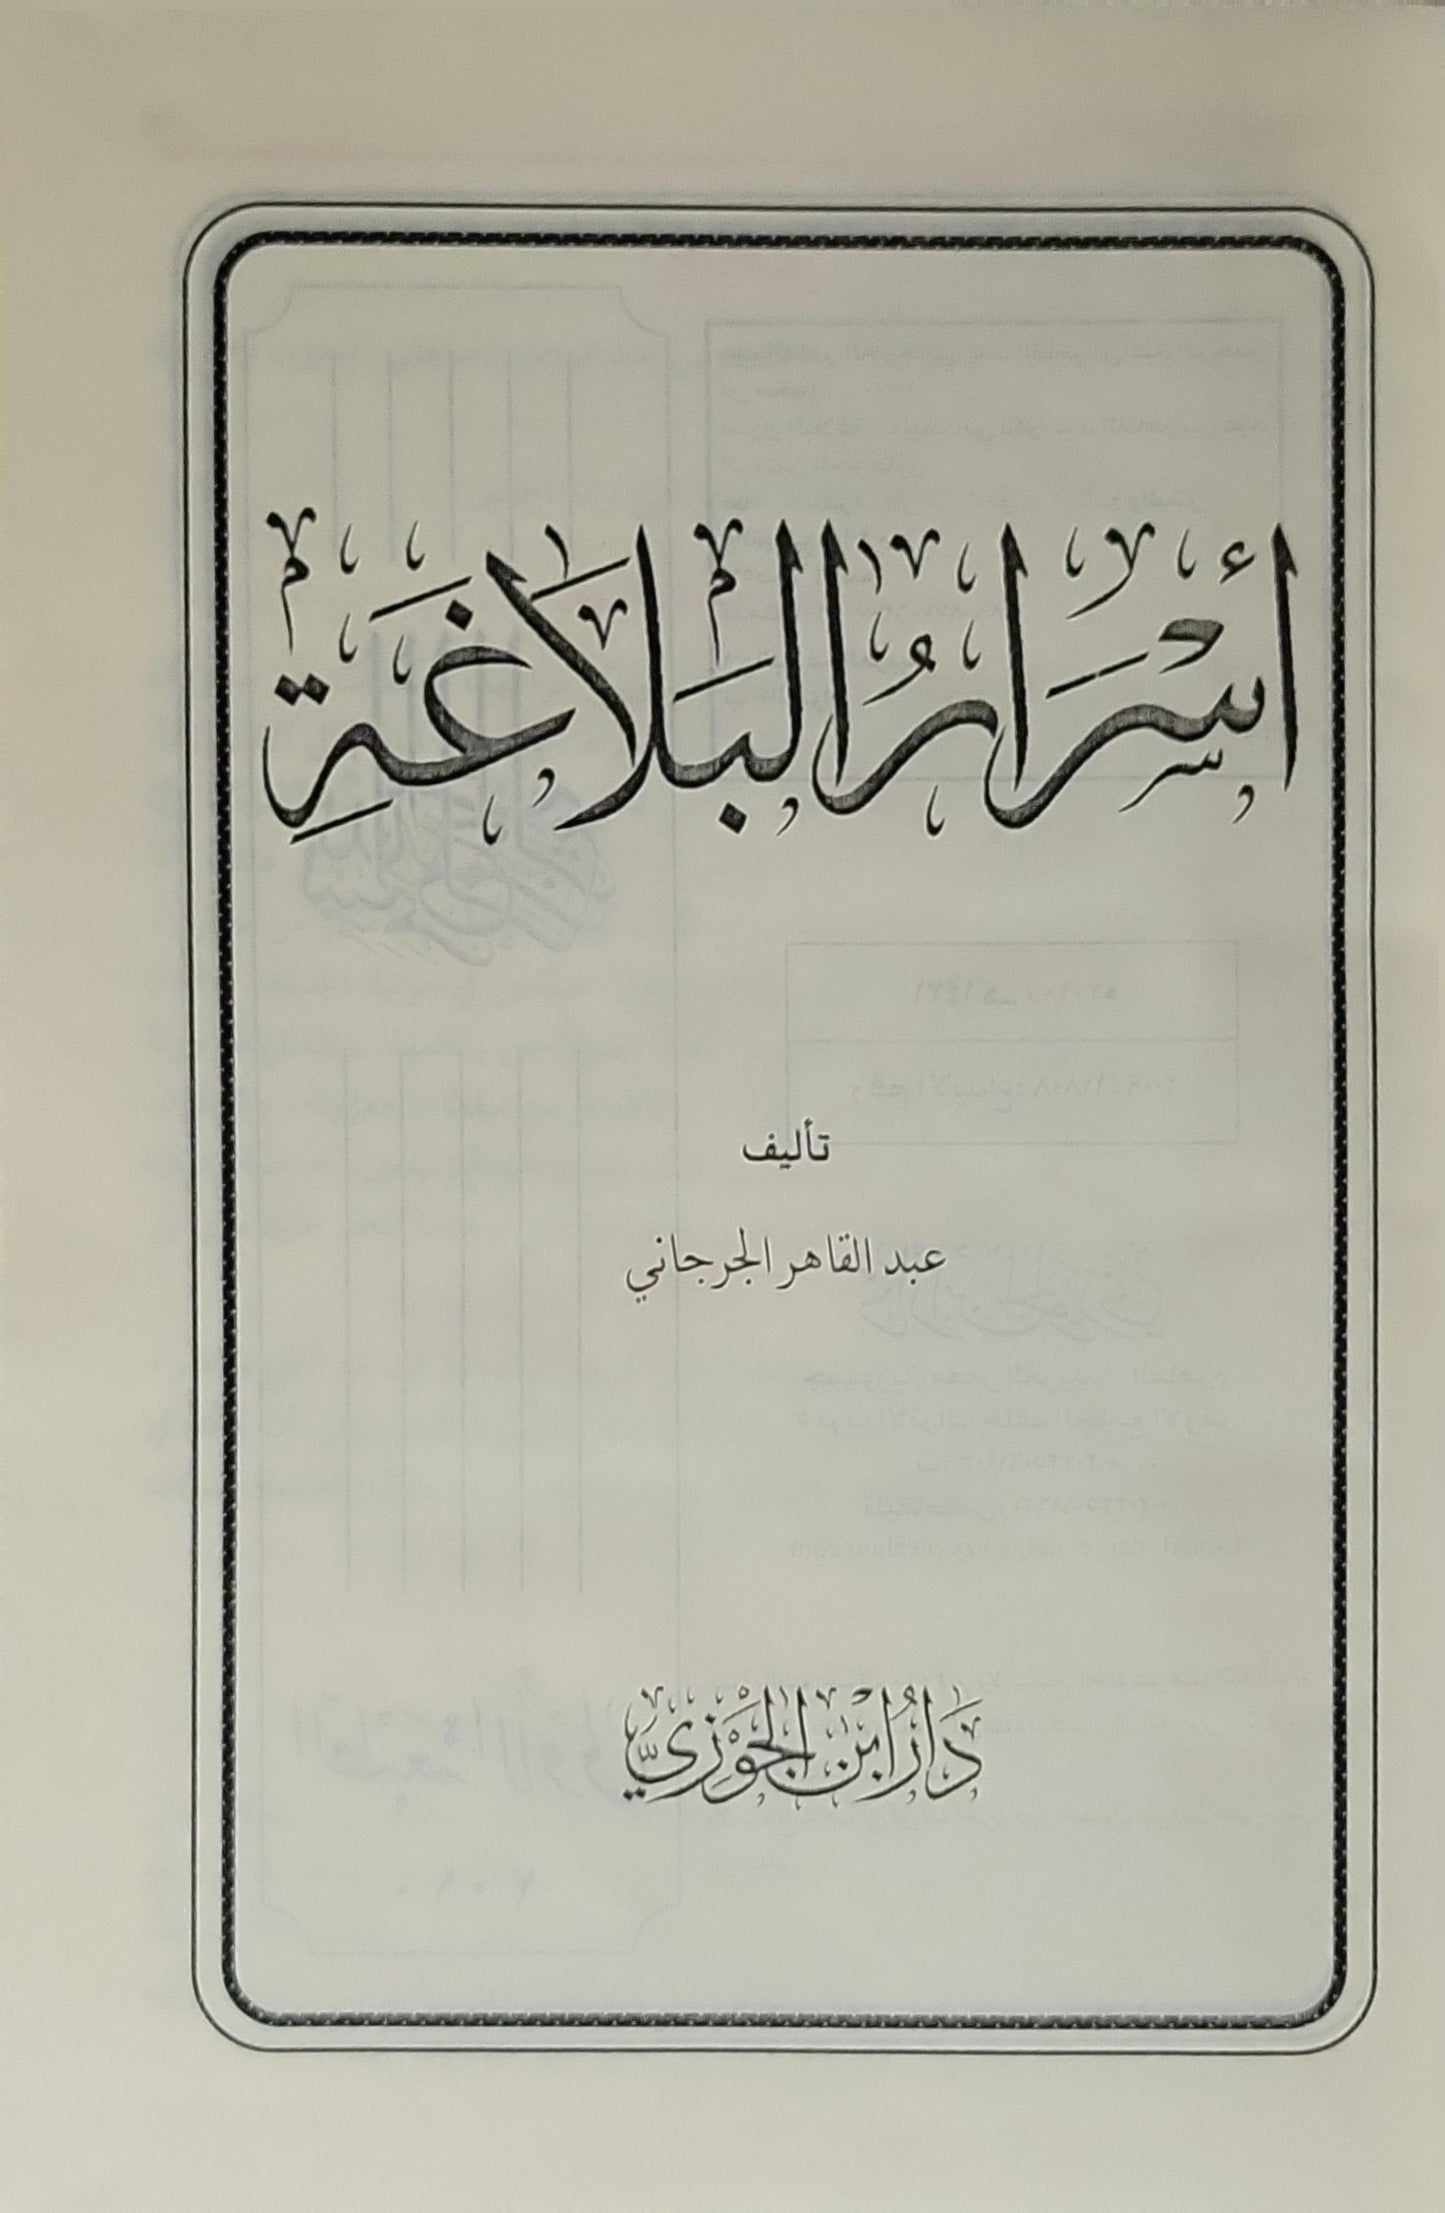 أسْرَارُ البَلَاغَةِ
تأليف
عبد القاهر الجرجاني
دَارُ ابْنِ الْجَوْزِيِّ